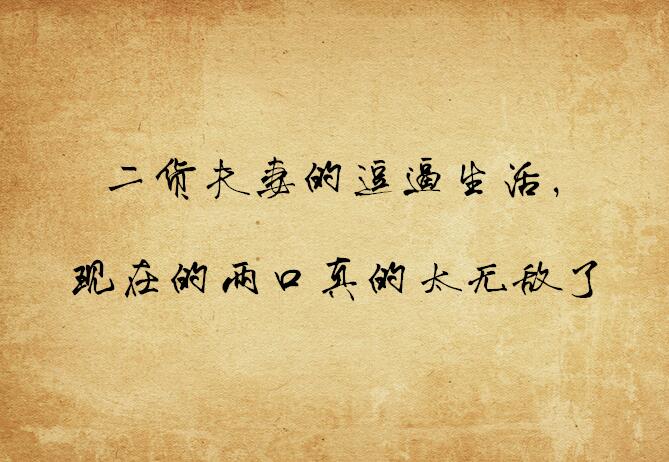 二货夫妻的逗逼生活,
现在的两口真的太无敌了